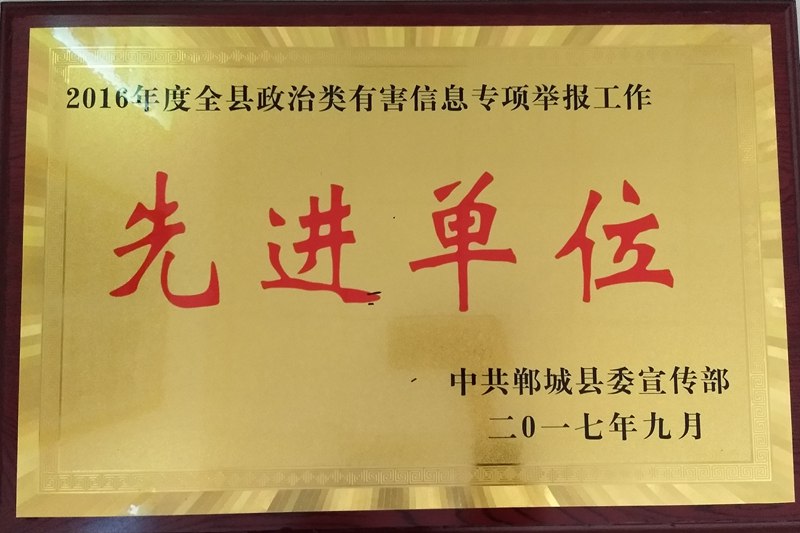 2016年度全县政治类有害信息专项举报工作
先进单位
中共郸城县委宣传部
二0一七年九月